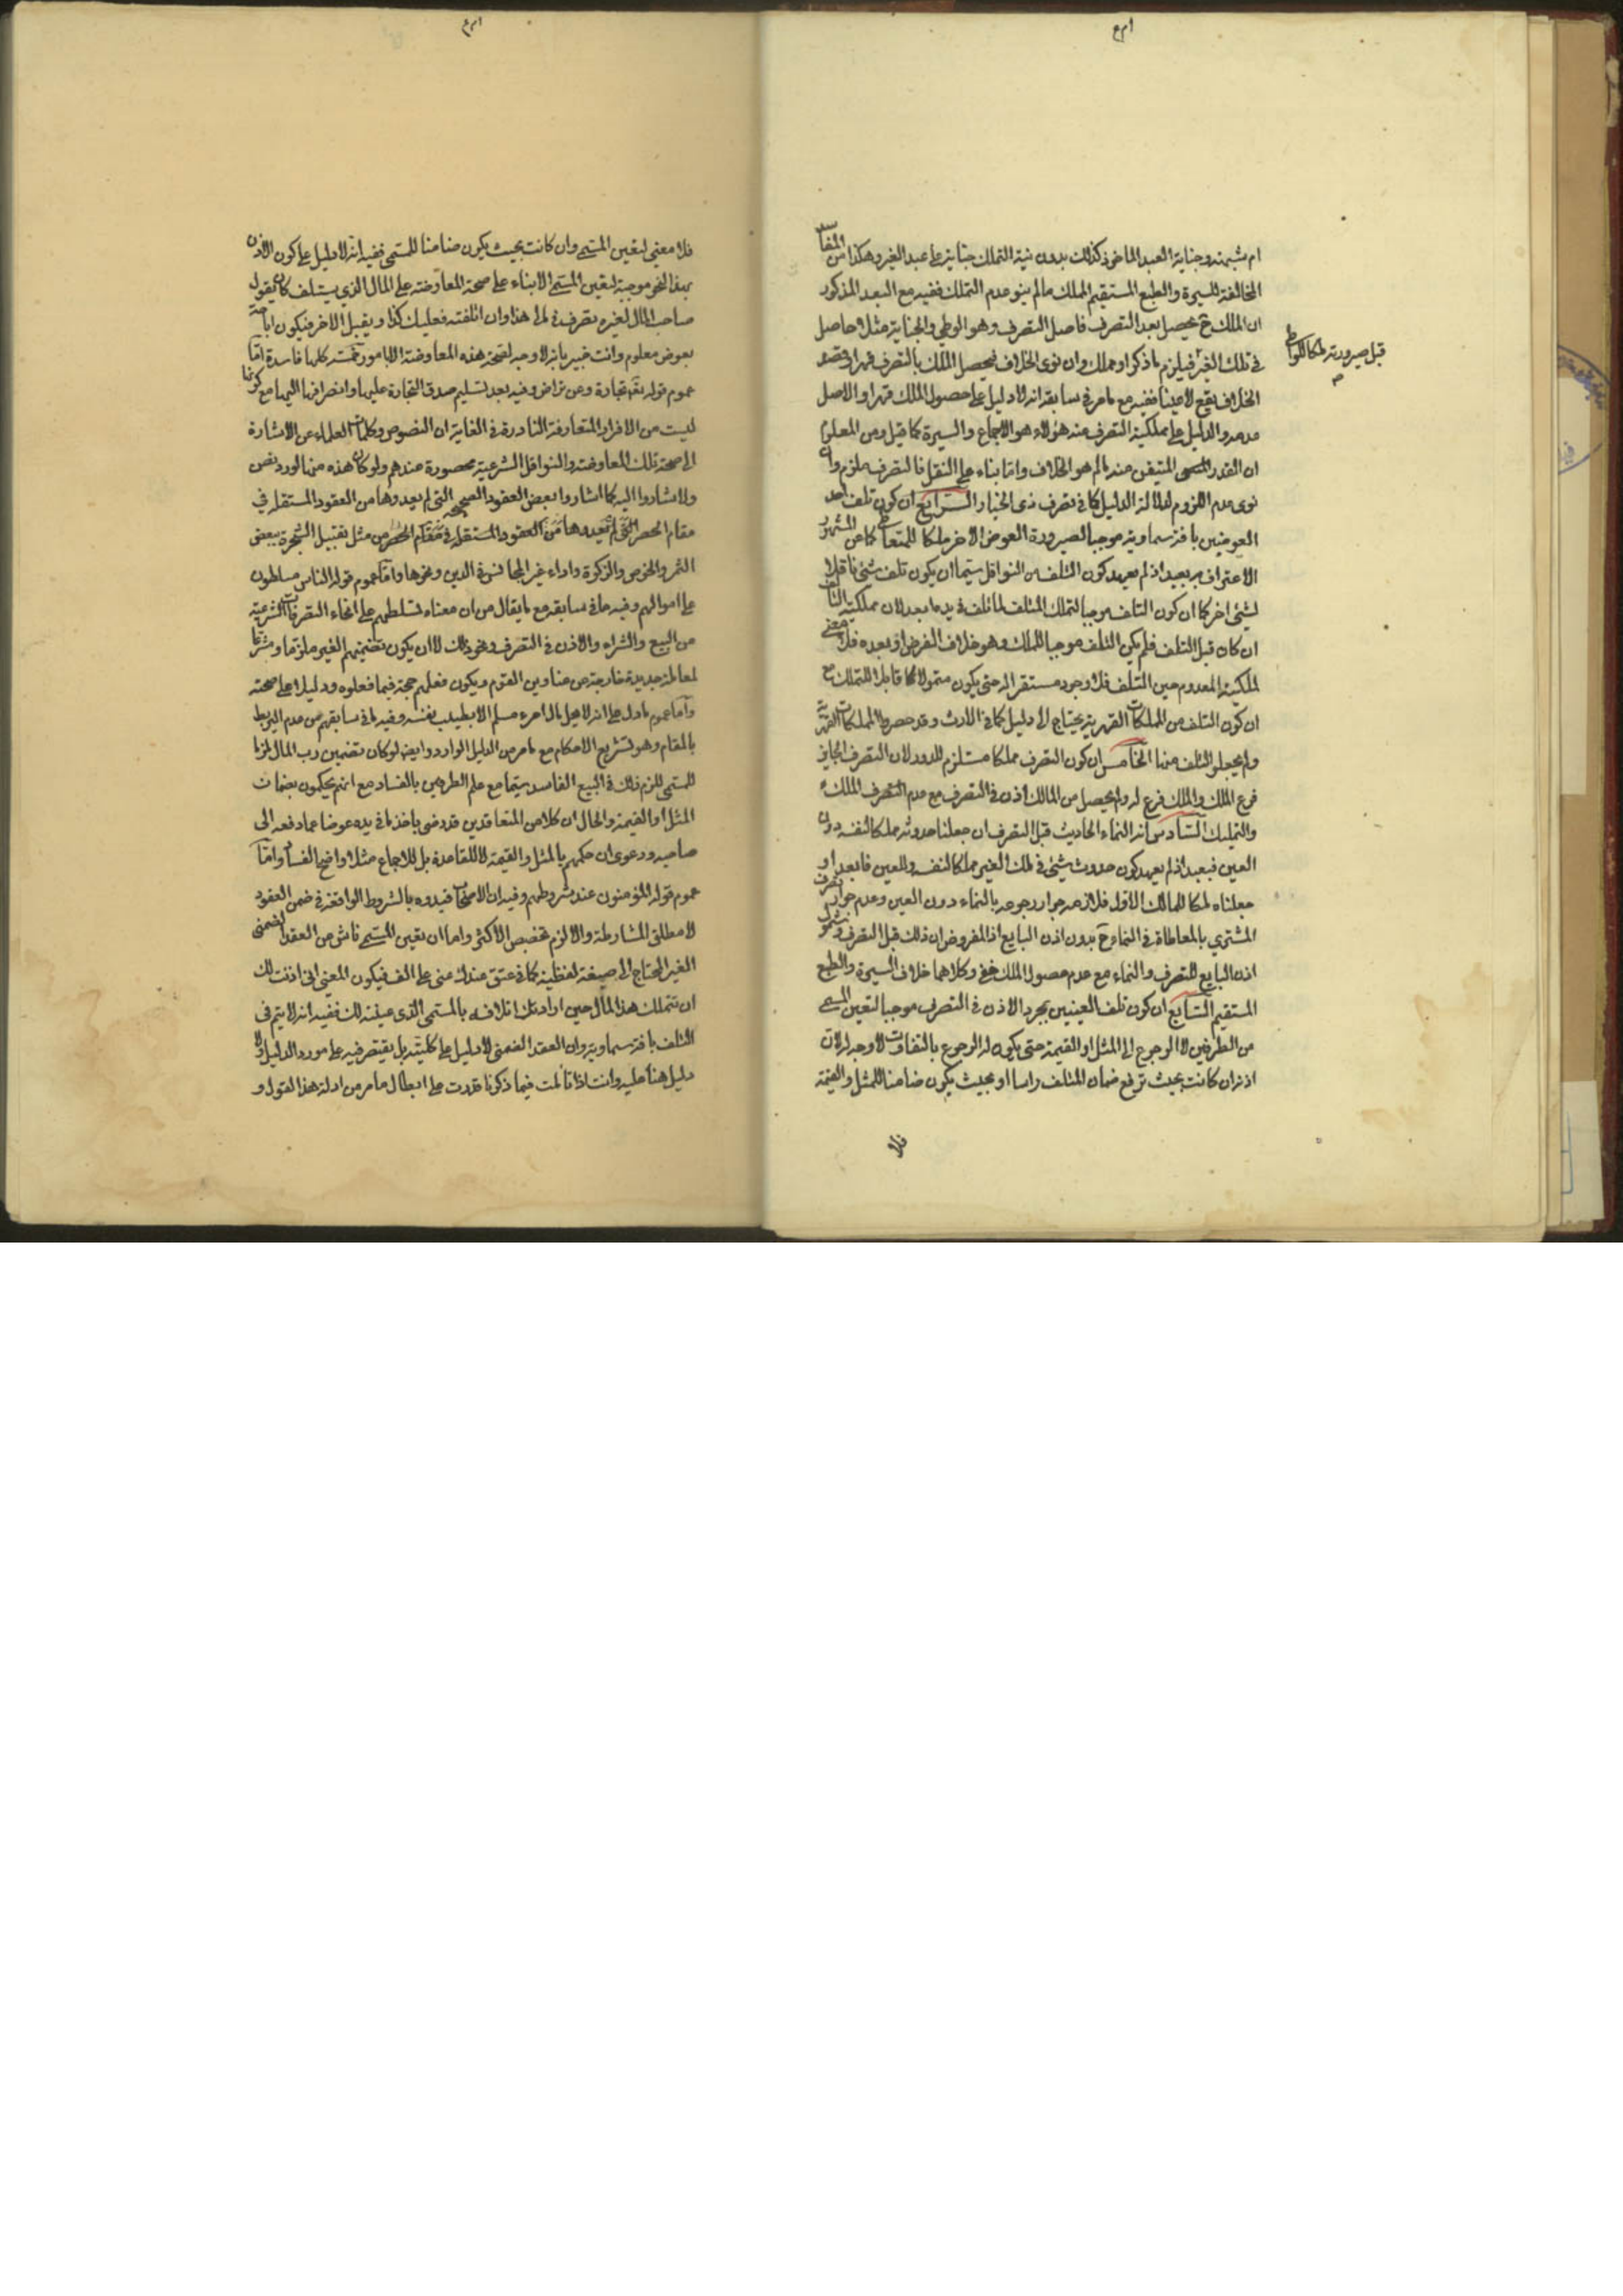 ام شبهة وجناية العبد الماخوذ كذلك بدون نية التملك جناية على عبد الغير وهكذا من المفاسد
المخالفة للسيرة والطبع المستقيم الملك مالم ينو عدم التملك ففيه مع البعد المذكور
ان الملك ح يحصل بعد التصرف فاصل التصرف وهو الوطي والجناية مثلا حاصل
قبل صيرورته ملكا للواطي
في تلك الغير فيلزم ما ذكر او مملك وان نوى الخلاف فيحصل الملك بالتصرف قهرا وقصد
الخلاف يقع لاغيا ففيه مع مامر في سابقه انه لا دليل على حصول الملك قهرا والاصل
عدمه والدليل على مملكية التصرف عند هؤلاء هو الاجماع والسيرة كما قيل ومن المعلوم
ان القدر المتيقن منه مالم هو الخلاف واما بناء على النقل فالتصرف ملزم وان
نوى عدم اللزوم لدلالة الدليل كما في تصرف ذى الخيار الرابع ان كون تلف احد
العوضين بافة سماوية موجبا لصيرورة العوض الاخر ملكا للمتعاطي كما عن المشهور
الاعتراف به بعيد اذ لم يعهد كون التلف من النواقل سيما ان يكون تلف شئ ناقلا
لشئ اخر كما ان كون التلف موجبا لتملك المتلف لما تلف في يده ابعد لان مملكية التالف
ان كان قبل التلف فلم يكن التلف موجبا للملك وهو خلاف الفرض او بعده فلا معنى
لملكية المعدوم حين التلف فلا وجود مستقر اله حتى يكون متمولا كما قابلا للتملك مع
ان كون التلف من المملكات القهرية يحتاج الى دليل كما في الارث وقد حصروا المملكات القهرية
ولم يجعلوا التلف منها الخامس ان كون التصرف مملكا مستلزم للدور لان التصرف الجايز
فرع الملك والملك فرع له ولم يحصل من المالك اذن في التصرف مع عدم التصرف الملك
والتمليك السادس انه النماء الحادث قبل التصرف ان جعلنا حدوثه مملكا لنفسه دون
العين فبعيد اذ لم يعهد كون حدوث شئ في ملك الغير مملكا لنفسه وللعين فابعد او
جعلناه ملكا للمالك الاول فلازمه جواز رجوعه بالنماء دون العين وعدم جواز تصرف
المشتري بالمعاطاة في النماء ح بدون اذن البايع اذ المفروض ان ذلك قبل التصرف وشمول
اذن البايع للتصرف والنماء مع عدم حصول الملك خفي وكلاهما خلاف السيرة والطبع
المستقيم السابع ان كون تلف العينين بمجرد الاذن في التصرف موجبا لتعين المسمى
من الطرفين لا الرجوع الى المثل او القيمة حتى يكون له الرجوع بالتفاوت لا وجه له لان
اذنه ان كانت بحيث ترفع ضمان المتلف راسا او بحيث يكون ضامنا للمثل والقيمة
فلا
فلا معنى لتعين المسمى وان كانت بحيث يكون ضامنا للمسمى ففيه انه لا دليل على كون الاذن
بهذا النحو موجبة لتعين المسمى الا بناء على صحة المعاوضة على المال الذي يستلف كان يقول
صاحب المال لغيره تصرف في مالى هذا وان اتلفته فعليك كذا ويقبل الاخر فيكون اباحة
بعوض معلوم وانت خبير بانه لا وجه لصحة هذه المعاوضة الا بامور خمسة كلها فاسدة اما
عموم قوله تعالى تجارة عن تراض وفيه بعد تسليم صدق التجارة عليها وانصرافها اليها مع كونها
ليست من الافراد المتعارفة النادرة في الغاية ان النصوص وكلمات العلماء عن الاشارة
الى صحة تلك المعاوضة والنواقل الشرعية محصورة عندهم ولو كان هذه منها لورد نص
ولاشاروا اليه كما اشاروا بعض العقود الصحيحة التى لم يعدوها من العقود المستقلة في
مقام الحصر من مثل تقبيل الشجرة ببعض
الثمر والخرص والزكوة واداء غير المجانس في الدين ونحوها واما عموم قوله الناس مسلطون
على اموالهم وفيه ما في سابقه مع ما يقال من ان معناه تسلطهم على انحاء التصرفات الشرعية
من البيع والشراء والاذن في التصرف ونحو ذلك لا ان يكون تضمينهم الغير ملزما ومشرعا
لمعاملة جديدة خارجة عن عناوين القوم ويكون فعلهم حجة فيما فعلوه ودليلا على صحته
واما عموم ما دل على انه لا يحل مال امرء مسلم الا بطيب نفسه وفيه ما في سابقه من عدم الربط
بالمقام وهو تشريع الاحكام مع مامر من الدليل الوارد وايضا لو كان تضمين رب المال ملزما
للمسمى للزم ذلك في البيع الفاسد سيما مع علم الطرفين بالفساد مع انهم يحكمون بضمان
المثل او القيمة والحال ان كلا من المتعاقدين قد رضى باخذ ما في يده عوضا عما دفعه الى
صاحبه ودعوى ان حكمهم بالمثل والقيمة لا للقاعدة بل للاجماع مثلا واضح الفساد واما
عموم قوله المؤمنون عند شروطهم وفيه ان الاصحاب قيدوه بالشروط الواقعة في ضمن العقود
لا مطلق المشارطة والا لزم تخصيص الاكثر واما ان تعين المسمى ناش من العقد الضمنى
الغير المحتاج الى صيغة لفظية كما في عتق عبدك عنى على الف فيكون المعنى انى اذنت لك
ان تتملك هذا المال حين ارادتك اتلافه بالمسمى الذى عينته لك ففيه انه لا يتم في
التلف بافة سماوية وان العقد الضمنى لا دليل على كليته بل يقتصر فيه على مورد الدليل ولا
دليل هنا عليه وانت اذا تاملت فيما ذكرنا قدرت على ابطال ما مر من ادلة هذا القول و